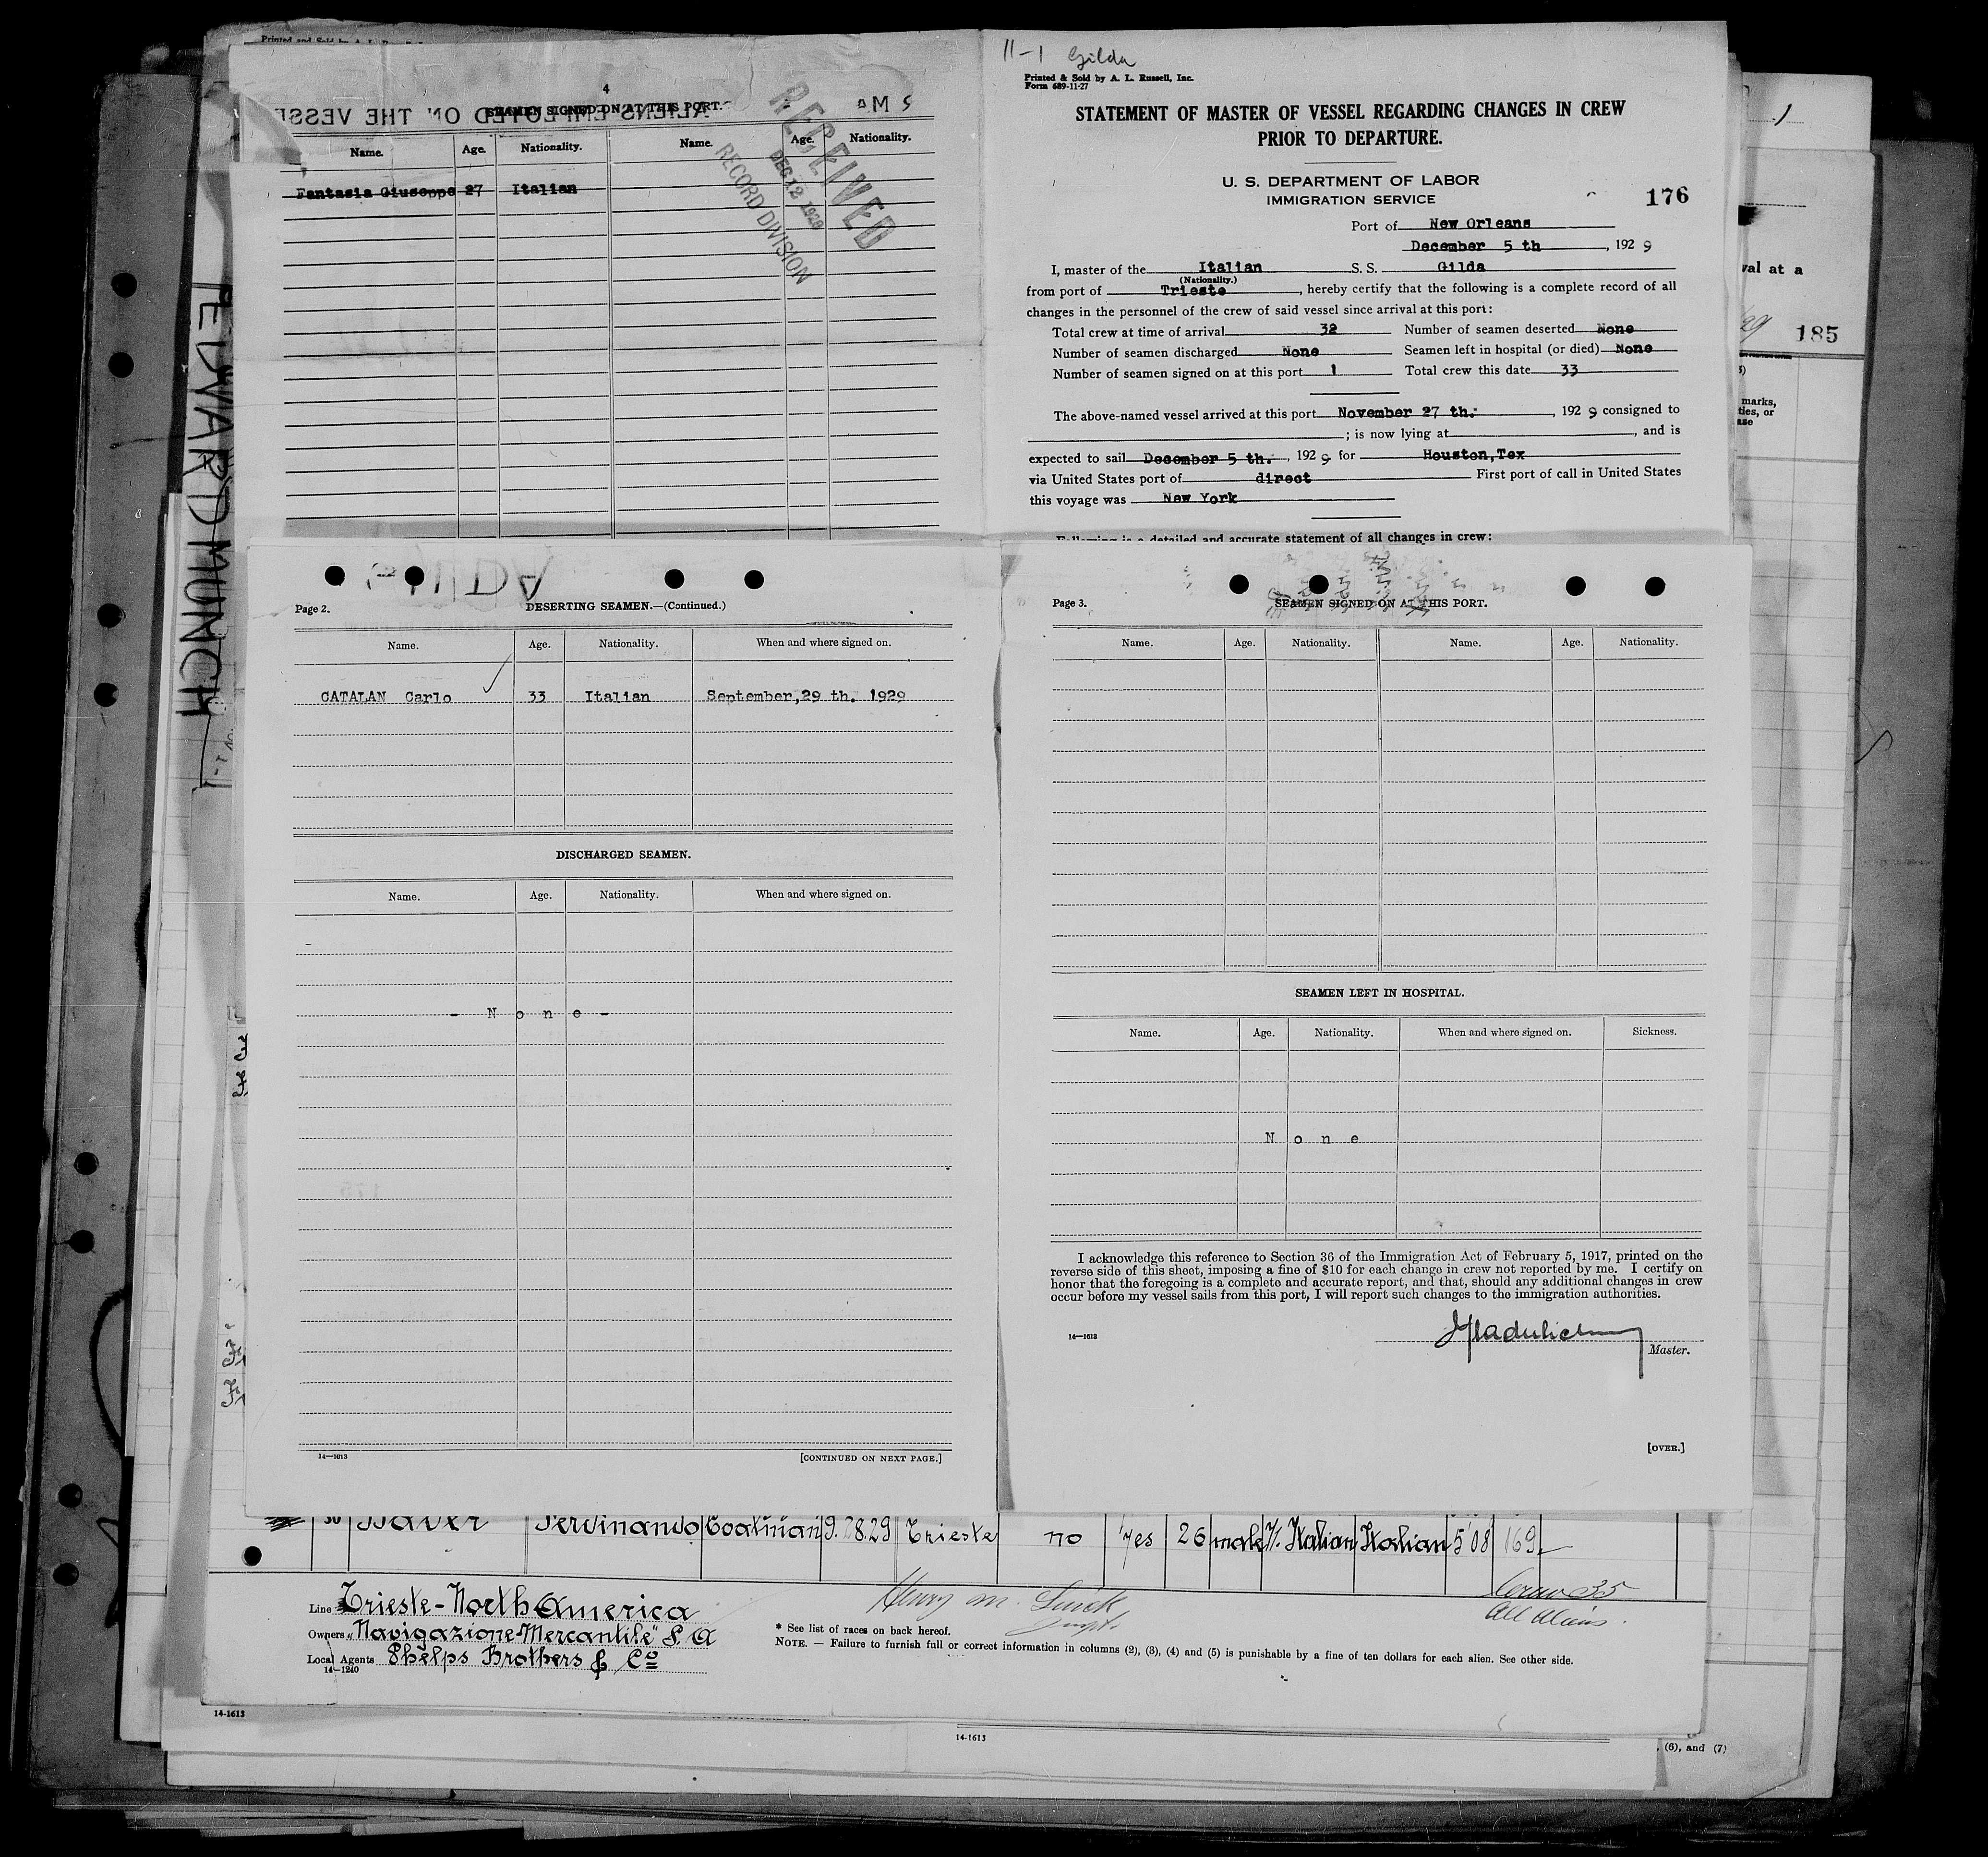 4
SEAMEN SIGNED ON AT THIS PORT.
ALIENS EMPLOYED ON THE VESSE
RECEIVED
DEC 12 1929
RECORD DIVISION
Name. Age. Nationality. Name. Age. Nationality.
Fantasia Giuseppe 27 Italian
11-1 Gilda
Printed & Sold by A. L. Russell, Inc.
Form 689-11-27
STATEMENT OF MASTER OF VESSEL REGARDING CHANGES IN CREW
PRIOR TO DEPARTURE.
U. S. DEPARTMENT OF LABOR
IMMIGRATION SERVICE
176
Port of New Orleans
December 5 th, 1929
I, master of the Italian S. S. Gilda
(Nationality.)
from port of Trieste, hereby certify that the following is a complete record of all
changes in the personnel of the crew of said vessel since arrival at this port:
Total crew at time of arrival 32 Number of seamen deserted None
Number of seamen discharged None Seamen left in hospital (or died) None
Number of seamen signed on at this port 1 Total crew this date 33
The above-named vessel arrived at this port November 27 th., 1929 consigned to
; is now lying at , and is
expected to sail December 5 th., 1929 for Houston,Tex
via United States port of direct First port of call in United States
this voyage was New York
Following is a detailed and accurate statement of all changes in crew:
1
val at a
29 185
marks,
ties, or
ase
EDVARD MUNCH
GILDA
Page 2. DESERTING SEAMEN.—(Continued.)
Name. Age. Nationality. When and where signed on.
CATALAN Carlo 33 Italian September,29 th. 1929
DISCHARGED SEAMEN.
Name. Age. Nationality. When and where signed on.
- N o n e -
14—1613 [CONTINUED ON NEXT PAGE.]
Page 3. SEAMEN SIGNED ON AT THIS PORT.
Name. Age. Nationality. Name. Age. Nationality.
SEAMEN LEFT IN HOSPITAL.
Name. Age. Nationality. When and where signed on. Sickness.
N o n e
I acknowledge this reference to Section 36 of the Immigration Act of February 5, 1917, printed on the
reverse side of this sheet, imposing a fine of $10 for each change in crew not reported by me. I certify on
honor that the foregoing is a complete and accurate report, and that, should any additional changes in crew
occur before my vessel sails from this port, I will report such changes to the immigration authorities.
14—1613
Master.
[OVER.]
30 Ferdinando Coalman 9.28.29 Trieste no yes 26 male Italian Italian 5'08 169
Line Trieste-North America
Owners "Navigazione Mercantile" S. A
Local Agents Phelps Brothers & Co
14-1240
Henry M.
Crew 35
All Aliens.
* See list of races on back hereof.
NOTE. — Failure to furnish full or correct information in columns (2), (3), (4) and (5) is punishable by a fine of ten dollars for each alien. See other side.
14-1613
14-1613
, (6), and (7)